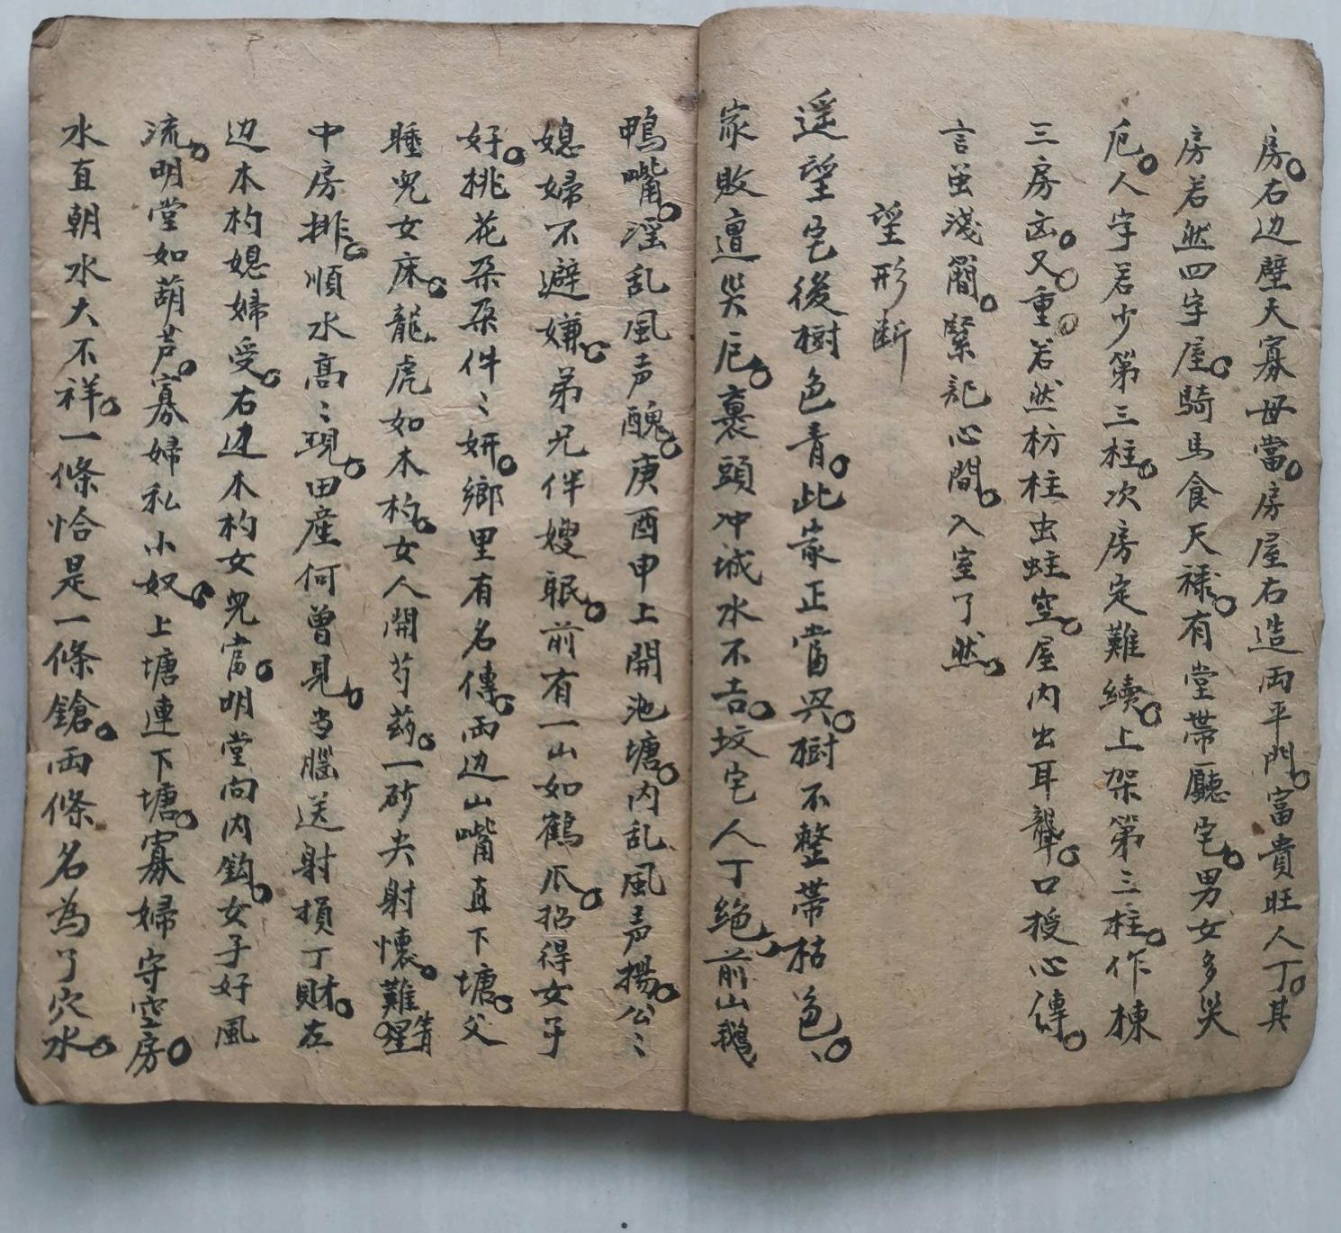 房。右边壁天寡母當。房屋右造両平門。富貴旺人丁。其
房若然四字屋。騎馬食天祿。有堂帶廳宅。男女多災
厄。人字若少第三柱。次房定難續。上架第三柱。作棟
三房凶。又重。若然枋柱虫蛀空。屋内出耳聾。口授心傳。
言虽淺簡。緊記心間。入室了然。
望形断
遥望宅後樹色青。此家正當興。樹不整帶枯色、。
家敗遭災厄。裹頭冲城水不吉。坟宅人丁绝。前山鵝
鴨嘴。淫乱風声醜。庚酉申上開池塘。内乱風声揚。公〻
媳婦不避嫌。弟兄伴嫂眠。前有一山如鶴爪。招得女子
好。桃花朶朶件〻妍。鄉里有名傳。両边山嘴直下塘。父
睡兒女床。龍虎如木杓。女人開芍药。一砂尖射懷。難星
中房排。順水髙〻現。田産何曾見。当腦送射損丁財。左
边木杓媳婦受。右边木杓女兒當。明堂向内鈎。女子好風
流。明堂如葫芦。寡婦私小奴。上塘連下塘。寡婦守空房。
水直朝水大不祥。一條恰是一條鎗。両條名為了穴水。